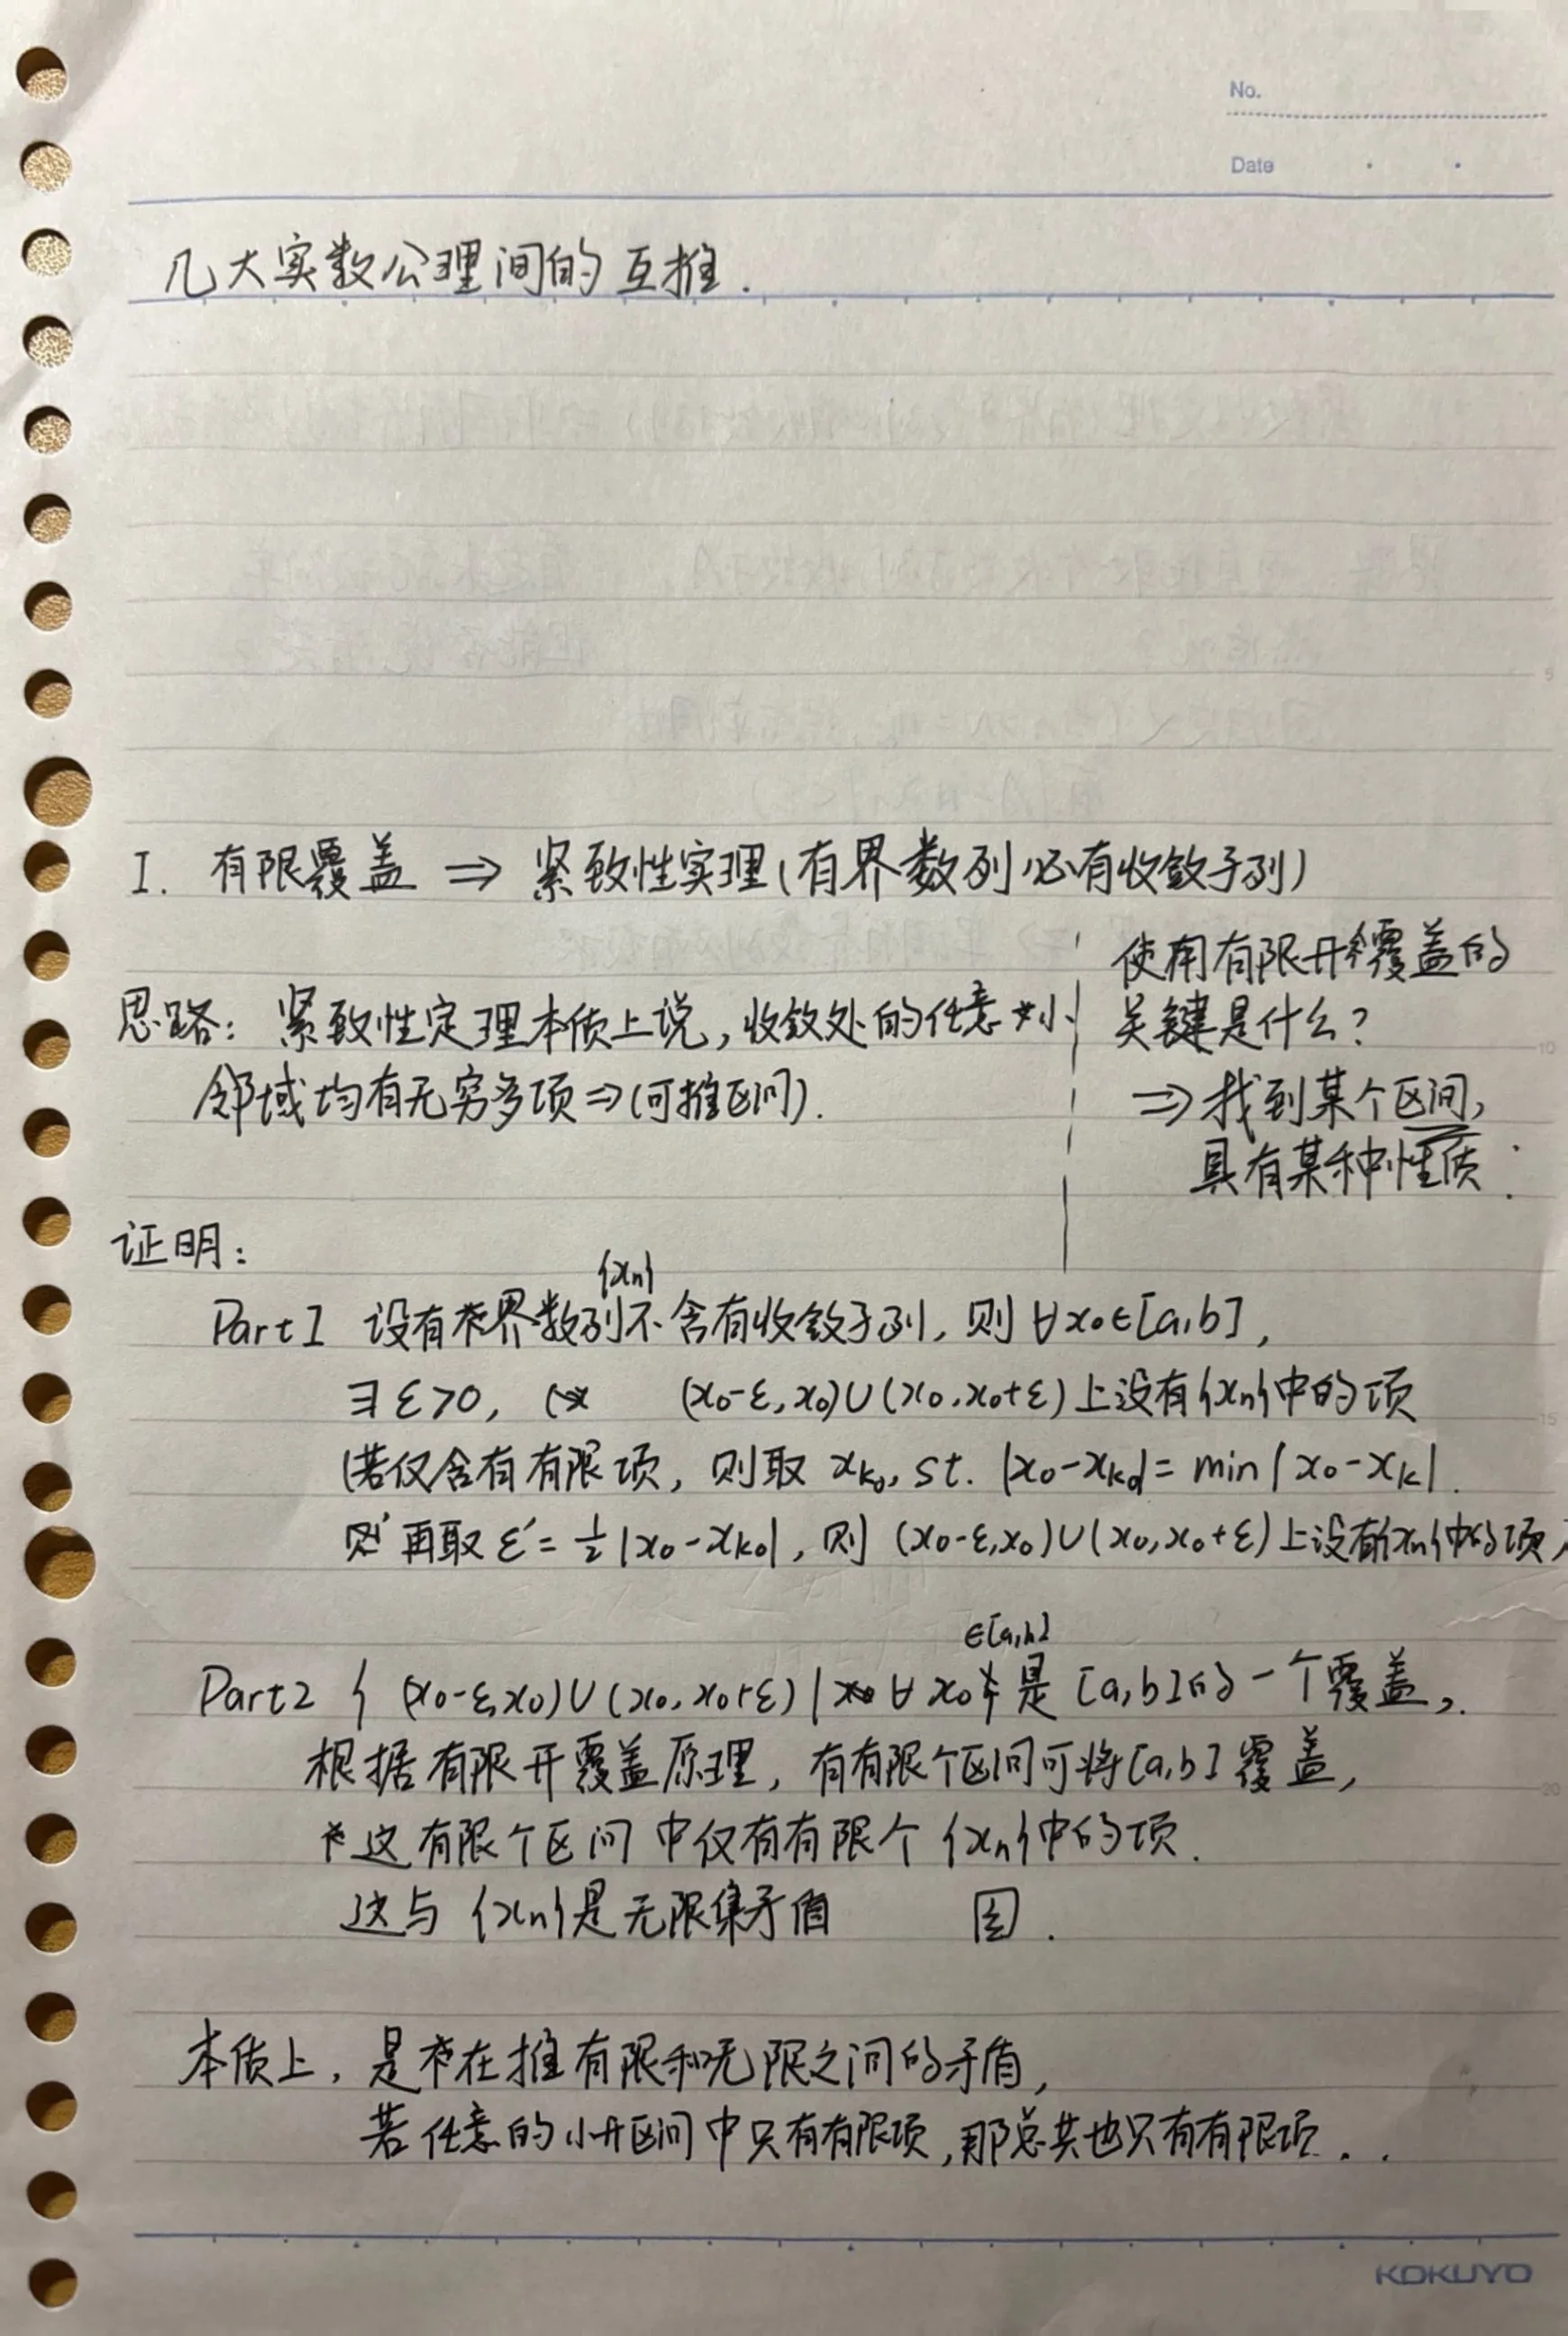 No.
Date
几大实数公理间的互推.
I. 有限覆盖 ⇒ 紧致性实理(有界数列必有收敛子列)
使用有限开覆盖的
关键是什么?
⇒ 找到某个区间,
具有某种性质.
思路: 紧致性定理本质上说, 收敛处的任意小
邻域均有无穷多项⇒(可推区间).
证明:
{xn}
Part1 设有界数列不含有收敛子列, 则 ∀x₀∈[a,b],
∃ε>0, (x₀-ε, x₀)∪(x₀, x₀+ε)上没有{xn}中的项
(若仅含有有限项, 则取 xk₀, st. |x₀-xk₀|= min|x₀-xk|.
则再取 ε'= ½|x₀-xk₀|, 则 (x₀-ε,x₀)∪(x₀,x₀+ε)上没有{xn}中的项)
∈[a,b]
Part2 {(x₀-ε,x₀)∪(x₀,x₀+ε)|∀x₀}是[a,b]的一个覆盖,
根据有限开覆盖原理, 有有限个区间可将[a,b]覆盖,
这有限个区间中仅有有限个{xn}中的项.
这与{xn}是无限集矛盾
本质上, 是在推有限和无限之间的矛盾,
若任意的小开区间中只有有限项, 那总共也只有有限项..
5
10
15
20
KOKUYO